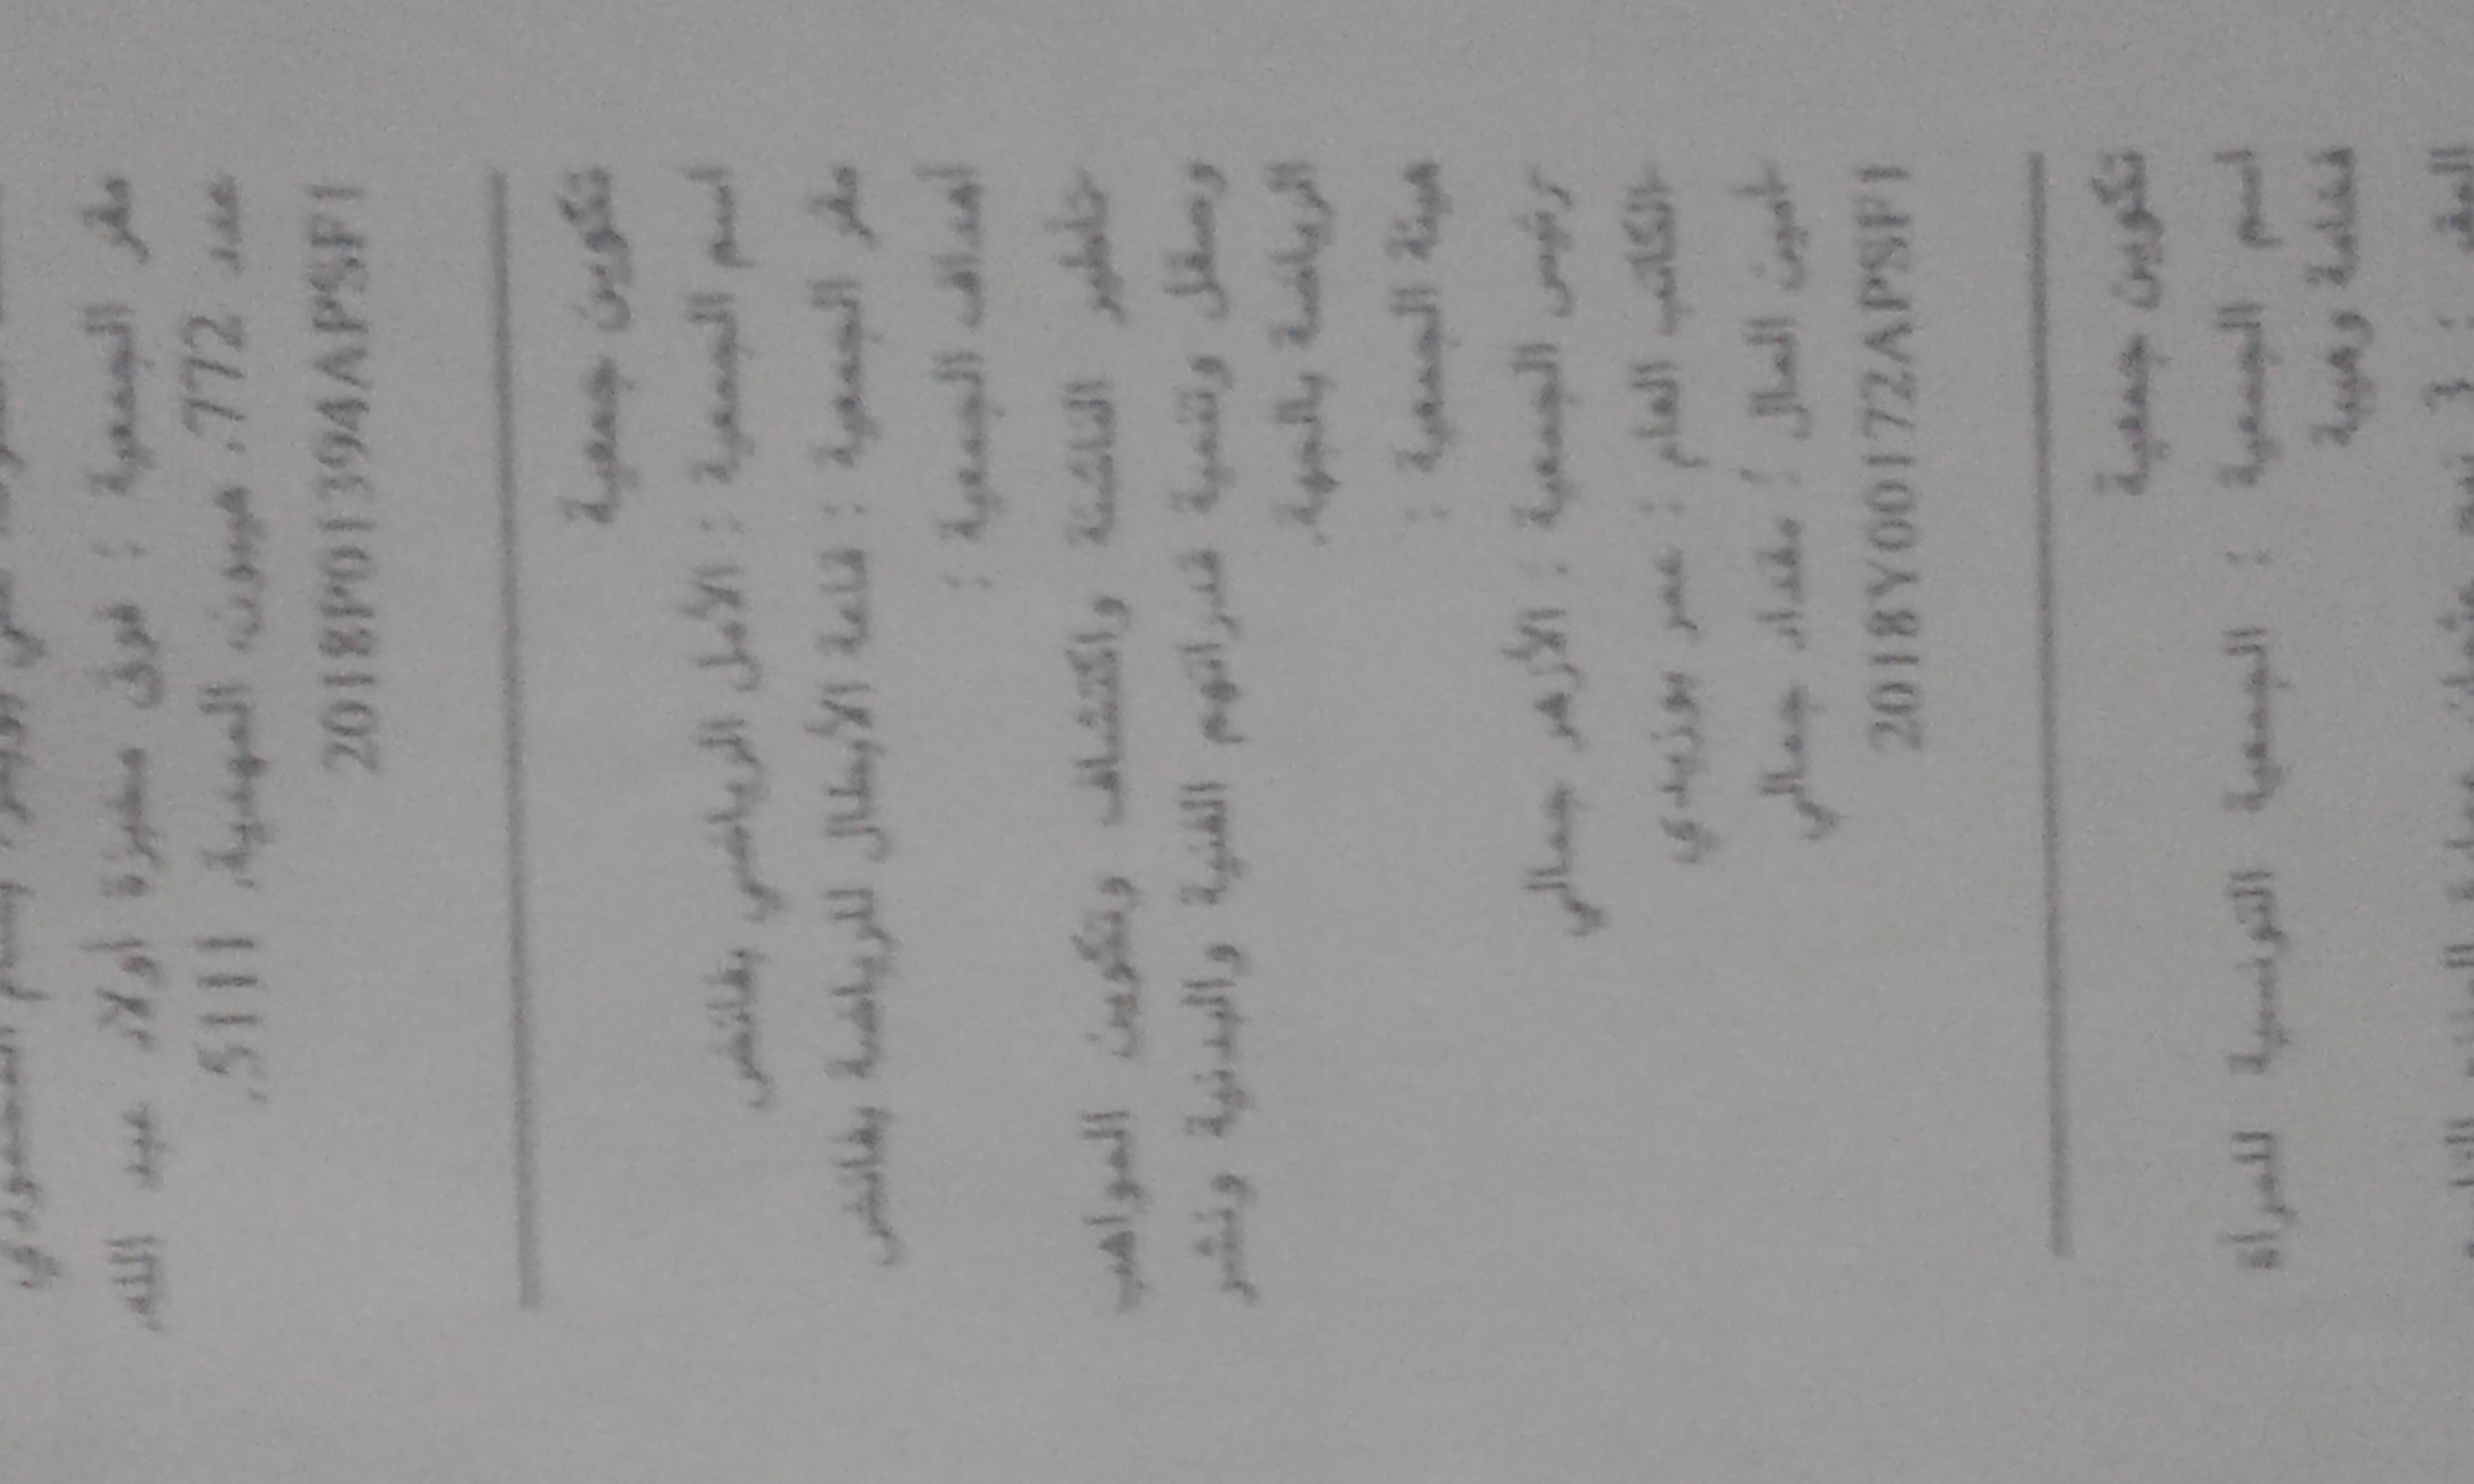 مقر الجمعية : فوق مخبزة أولاد عبد الله،
عدد 772، هيبون، المهدية، 5111.
2018P01394APSF1
تكوين جمعية
اسم الجمعية : الأمل الرياضي بغانش
مقر الجمعية : قاعة الأبطال للرياضة بغانش
أهداف الجمعية :
-تأطير الناشئة واكتشاف وتكوين المواهب
وصقل وتنمية قدراتهم الفنية والبدنية ونشر
الرياضة بالجهة.
هيئة الجمعية :
رئيس الجمعية : الأزهر جمالي
-الكاتب العام : عمر بوزيدي
-أمين المال : مقداد جمالي
2018Y00172APSF1
تكوين جمعية
اسم الجمعية : الجمعية التونسية للمرأة
فخامة وهيبة